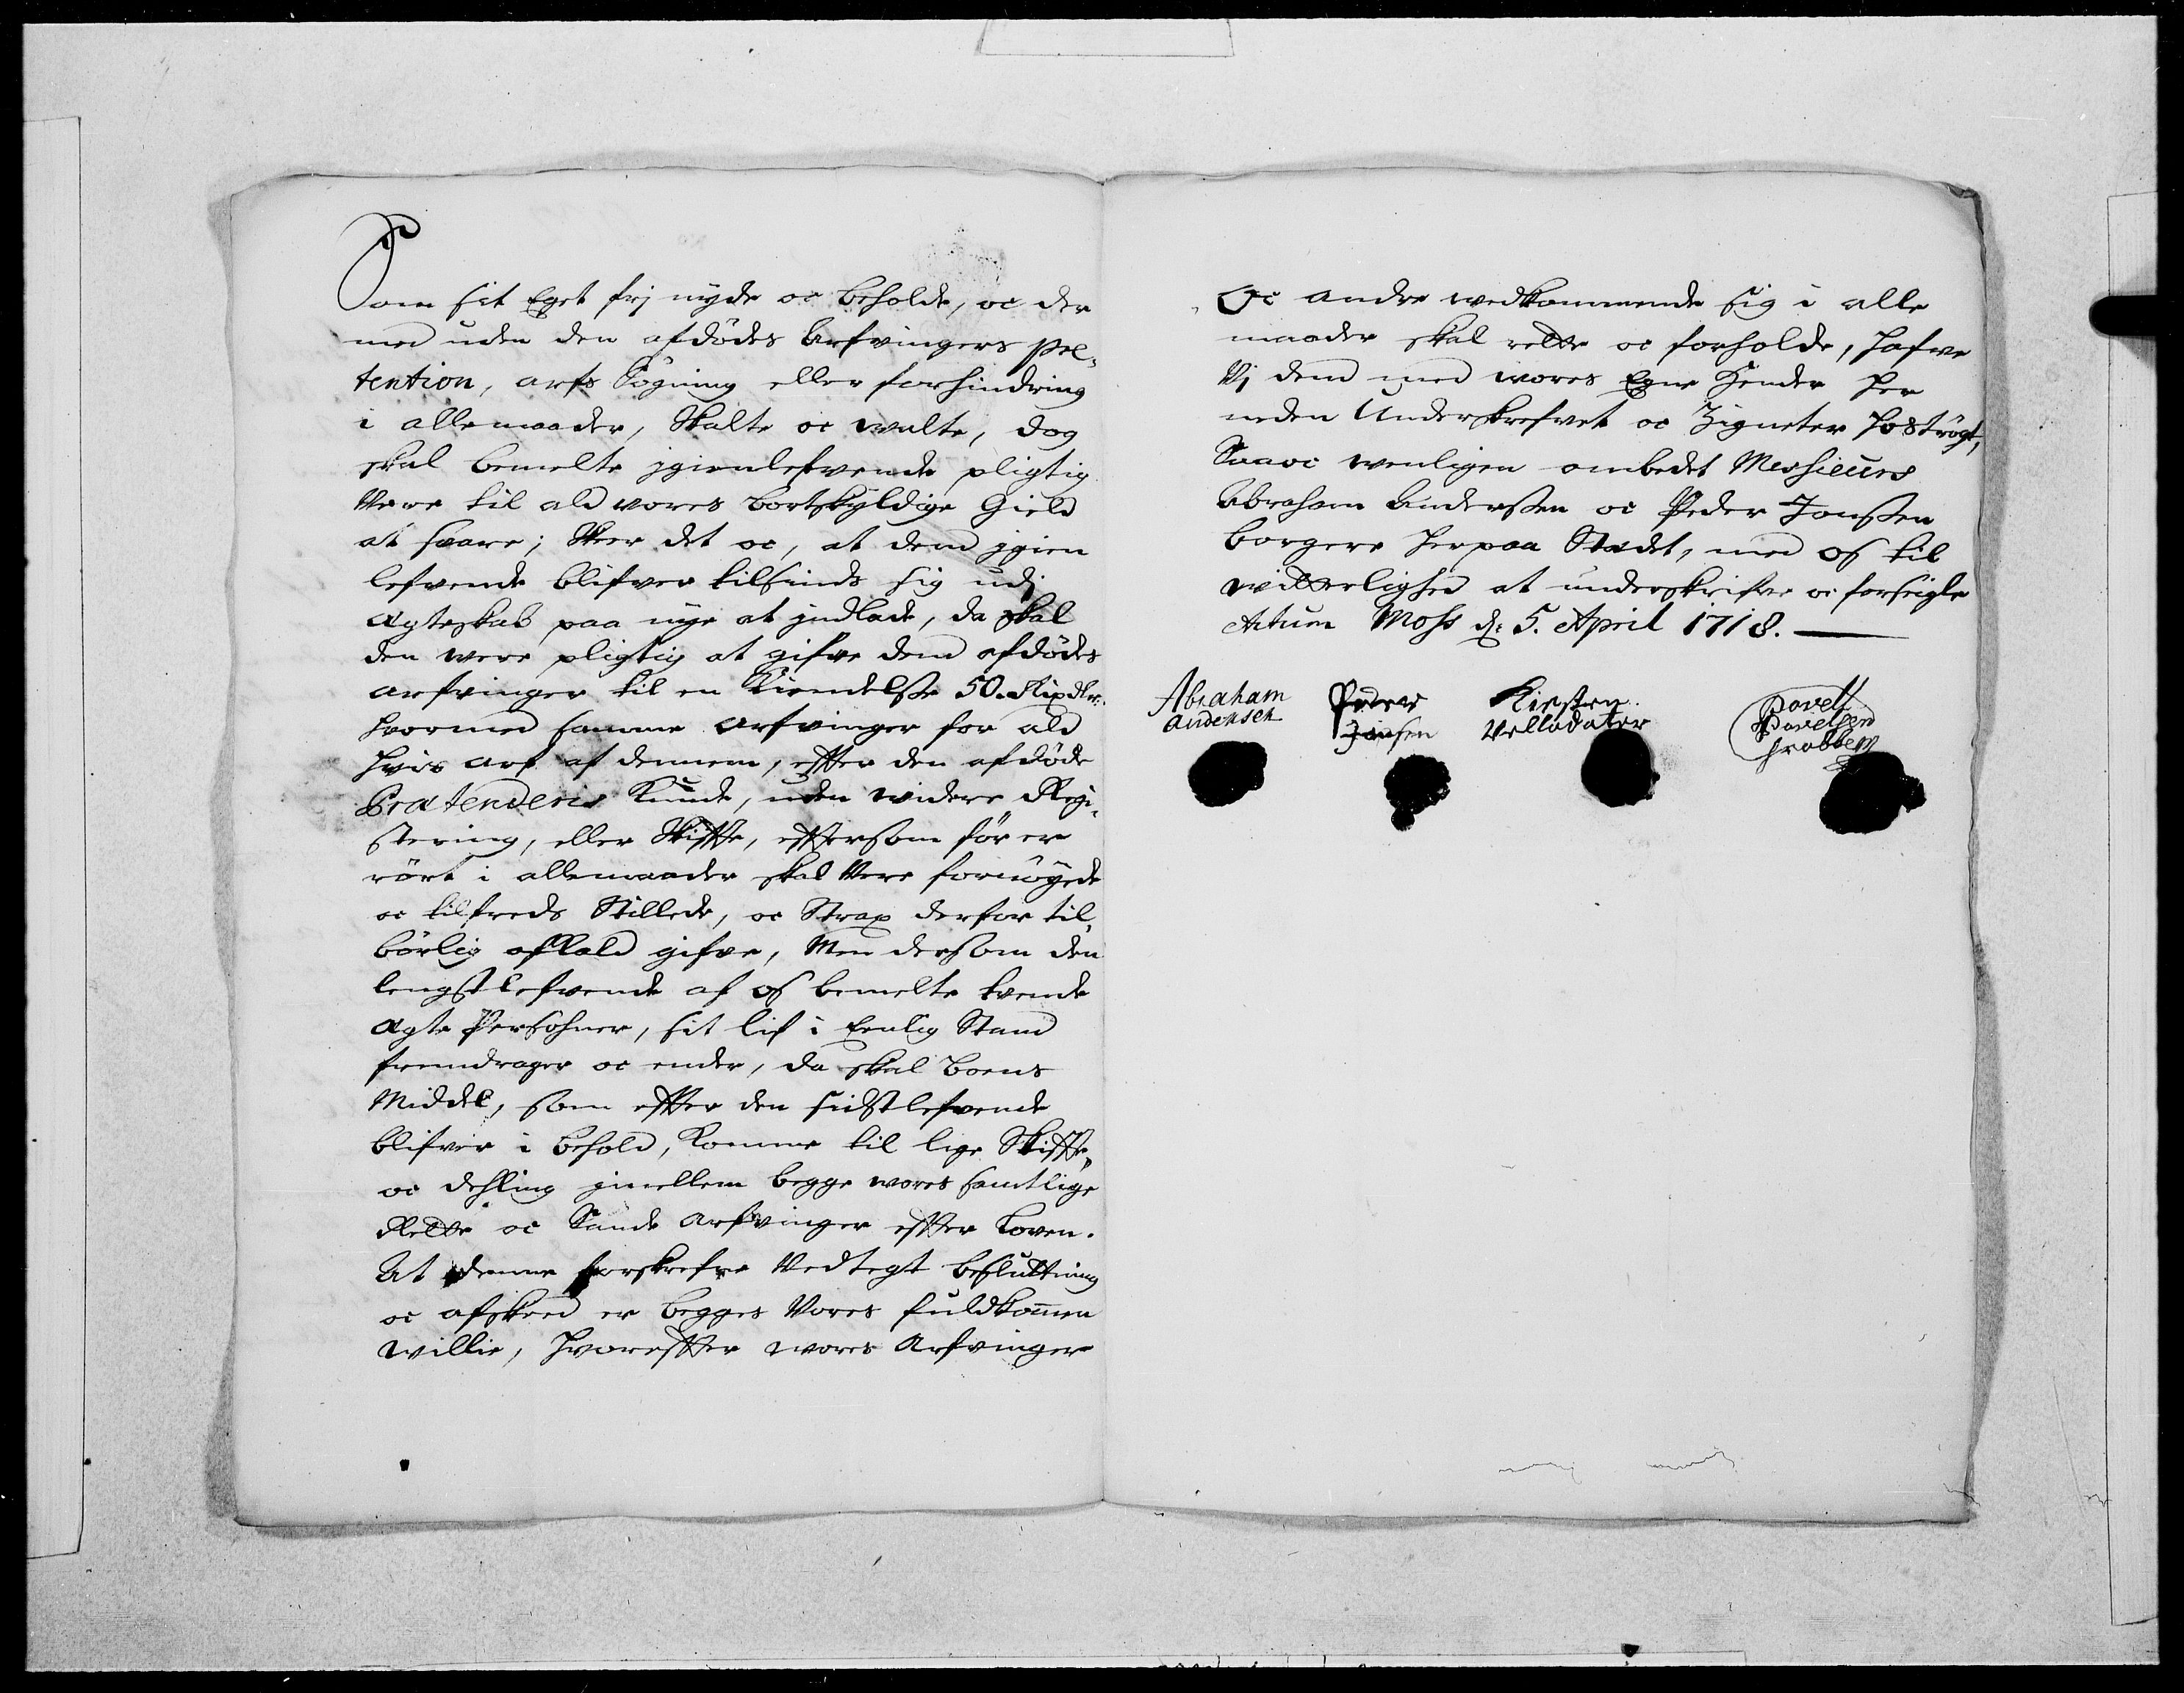 Som sit Eget frj nyde oc beholde, oc der
med uden den afdødes Arfvingers præ¬
tention, arfs Søgning eller forhindring
i allemaader, Skalte oc walte, dog
skal bemelte jgienlefvende pligtig
Vere til ald vores bortskyldige Gield
at svare; Skeer det oc, at dend jgien
lefvende blifver tilsinds sig udj
Ægteskab paa nye at jndlade, da skal
den were pligtig at gifve dend afdødes
arfvinger til en Kiendelsse 50. Rixdlr.
hvormed samme Arfvinger for ald
hvis arf af dennem, effter den afdøde
Prætenderis Kunde, uden widere Regi¬
stering, eller Skiffte, efftersom før er
rørt i allemaader skal Vere fornøyede
oc tilfreds Stillede, oc Strax derfor til¬
børlig afkald gifve, Men dersom den
lengstlefvende af os bemelte tvende
Ægte Persohner, sit lif i Eenlig Stand
fremdrager oc ender, da skal boens
Middel, som effter den sidstlefvende
blifver i behold, Komme til lige Skiffte
oc dehling jmellem begge vores samtlige
Rette oc Sande Arfvinger effter Loven.
At denne forskrefne Vedtegt beslutning
oc afskeed er begges Vores fuldkommen
Willie, hvoreffter wores Arfvinger
Oc andre wedkommende sig i alle
maader skal rette oc forholde, hafve
Vj dend med wores Egne Hender her
neden Underskrefvet oc Zigneter hostrøgt,
Saa oc wenligen ombedet Messieurs
Abraham Anderssen oc Peder Jonssen
borgere her paa Stædet, med os til
Witterlighed at underskrifve oc forseigle
Actum Moss d: 5. April 1718.
Abraham Peder Kirsten Povell
Andersen Jonsen Vellesdater Povelsen
Grabbow